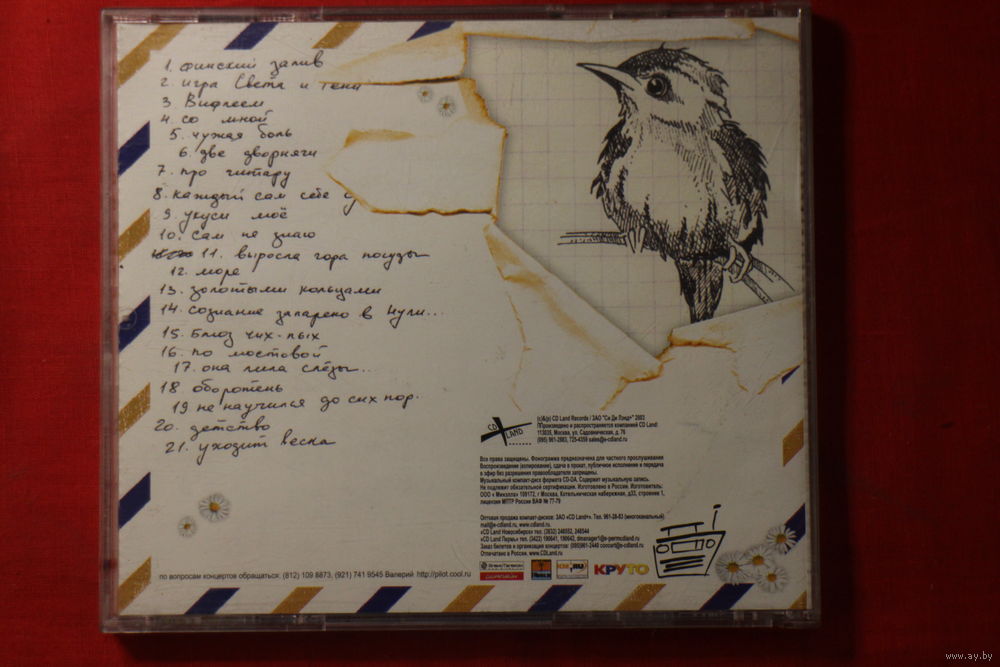 1. финский залив
2. игра Света и тени
3 Вифлеем
4. со мной
5. чужая боль
6. две дворняги
7. про гитару
8. каждый сам себе
9. укуси моё
10. Сам не знаю
11. выросла гора посуды
12. море
13. золотыми кольцами
14. сознание запарено в Нули...
15. Блюз чих-пых
16. по мостовой
17. она пила слёзы...
18 оборотень
19 не научился до сих пор.
20. детство
21. уходит весна
CD LAND
(c)&(p) CD Land Records / ЗАО "Си Ди Лэнд+" 2003
Произведено и распространяется компанией CD Land
113035, Москва, ул. Садовническая, д. 76
(095) 961-2883, 725-4359 sales@e-cdland.ru
Все права защищены. Фонограмма предназначена для частного прослушивания
Воспроизведение (копирование), сдача в прокат, публичное исполнение и передача
в эфир без разрешения правообладателя запрещены.
Музыкальный компакт-диск формата CD-DA. Содержит музыкальную запись.
Не подлежит обязательной сертификации. Изготовлено в России. Изготовитель:
ООО 109172, г Москва, Котельническая набережная, д33, строение 1,
лицензия МПТР России ВАФ № 77-79
Оптовая продажа компакт-дисков: ЗАО «CD Land+». Тел. 961-28-83 (многоканальный)
mail@e-cdland.ru, www.cdland.ru
«CD Land Новосибирск» тел. (3832) 248552, 248544
«CD Land Пермь» тел. (3422) 190641, 190642, dmanager1@e-permcdland.ru
Заказ билетов и организация концертов: (095)961-2440 concert@e-cdland.ru
Отпечатано в России. www.CDLand.ru
КРУТО
по вопросам концертов обращаться: (812) 109 8873, (921) 741 9545 Валерий http://pilot.cool.ru
www.ay.by